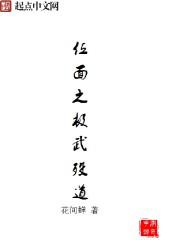 起点中文网
位面之极武道
花间蝉 著